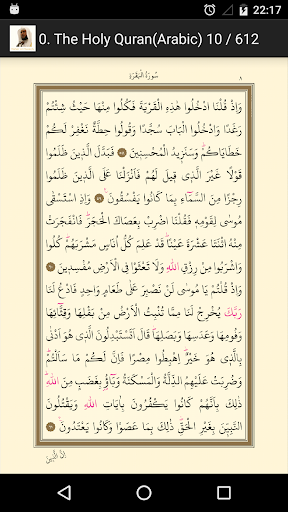 22:17
0. The Holy Quran(Arabic) 10 / 612
سُورَةُ الْبَقَرَةِ
٨
وَإِذْ قُلْنَا ادْخُلُوا هٰذِهِ الْقَرْيَةَ فَكُلُوا مِنْهَا حَيْثُ شِئْتُمْ
رَغَدًا وَادْخُلُوا الْبَابَ سُجَّدًا وَقُولُوا حِطَّةٌ نَغْفِرْ لَكُمْ
خَطَايَاكُمْ وَسَنَزِيدُ الْمُحْسِنِينَ ﴿٥٨﴾ فَبَدَّلَ الَّذِينَ ظَلَمُوا
قَوْلًا غَيْرَ الَّذِي قِيلَ لَهُمْ فَأَنْزَلْنَا عَلَى الَّذِينَ ظَلَمُوا
رِجْزًا مِنَ السَّمَاءِ بِمَا كَانُوا يَفْسُقُونَ ﴿٥٩﴾ وَإِذِ اسْتَسْقٰى
مُوسٰى لِقَوْمِهِ فَقُلْنَا اضْرِبْ بِعَصَاكَ الْحَجَرَ فَانْفَجَرَتْ
مِنْهُ اثْنَتَا عَشْرَةَ عَيْنًا قَدْ عَلِمَ كُلُّ أُنَاسٍ مَشْرَبَهُمْ كُلُوا
وَاشْرَبُوا مِنْ رِزْقِ اللّٰهِ وَلَا تَعْثَوْا فِي الْأَرْضِ مُفْسِدِينَ ﴿٦٠﴾
وَإِذْ قُلْتُمْ يَا مُوسٰى لَنْ نَصْبِرَ عَلٰى طَعَامٍ وَاحِدٍ فَادْعُ لَنَا
رَبَّكَ يُخْرِجْ لَنَا مِمَّا تُنْبِتُ الْأَرْضُ مِنْ بَقْلِهَا وَقِثَّائِهَا
وَفُومِهَا وَعَدَسِهَا وَبَصَلِهَا قَالَ أَتَسْتَبْدِلُونَ الَّذِي هُوَ أَدْنٰى
بِالَّذِي هُوَ خَيْرٌ اِهْبِطُوا مِصْرًا فَإِنَّ لَكُمْ مَا سَأَلْتُمْ
وَضُرِبَتْ عَلَيْهِمُ الذِّلَّةُ وَالْمَسْكَنَةُ وَبَاؤُوا بِغَضَبٍ مِنَ اللّٰهِ
ذٰلِكَ بِأَنَّهُمْ كَانُوا يَكْفُرُونَ بِآيَاتِ اللّٰهِ وَيَقْتُلُونَ
النَّبِيِّينَ بِغَيْرِ الْحَقِّ ذٰلِكَ بِمَا عَصَوْا وَكَانُوا يَعْتَدُونَ ﴿٦١﴾